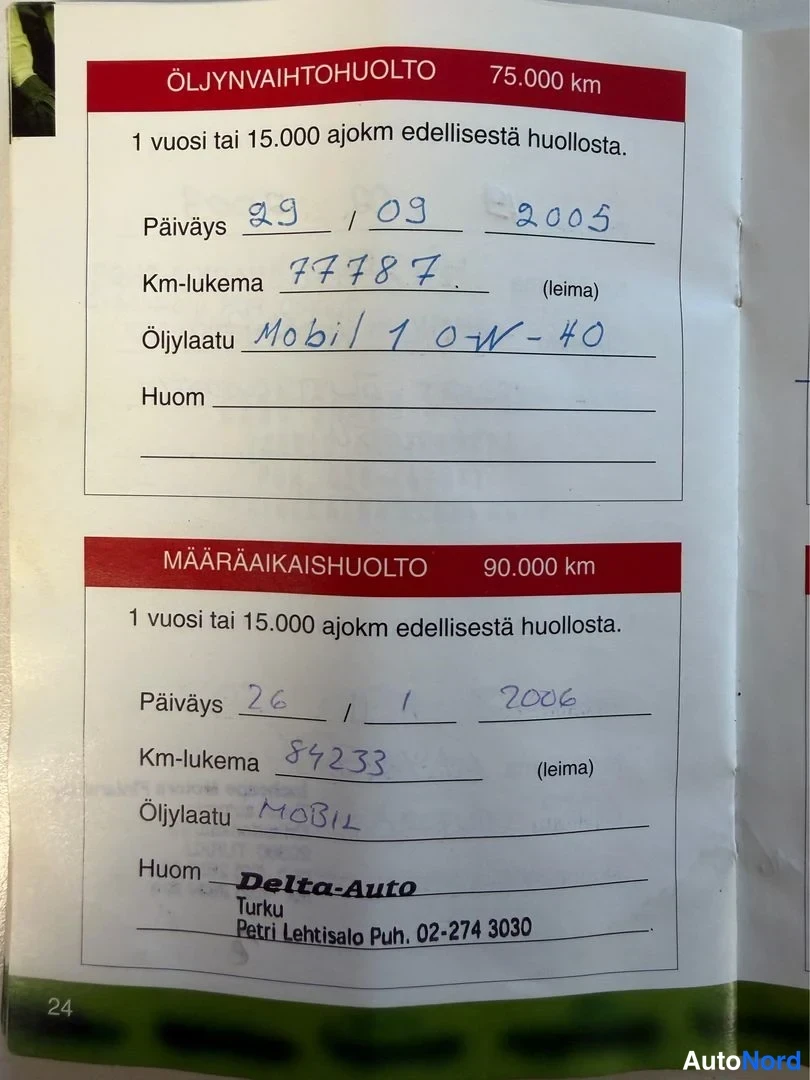 ÖLJYNVAIHTOHUOLTO 75.000 km
1 vuosi tai 15.000 ajokm edellisestä huollosta.
Päiväys 29 / 09 2005
Km-lukema 77787.
(leima)
Öljylaatu Mobil 1 0W-40
Huom
MÄÄRÄAIKAISHUOLTO 90.000 km
1 vuosi tai 15.000 ajokm edellisestä huollosta.
Päiväys 26 / 1 2006
Km-lukema 84233
(leima)
Öljylaatu MOBIL
Huom Delta-Auto
Turku
Petri Lehtisalo Puh. 02-274 3030
24
AutoNord